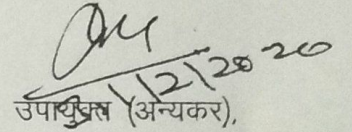 1/12/2020
उपायुक्त (अन्यकर),